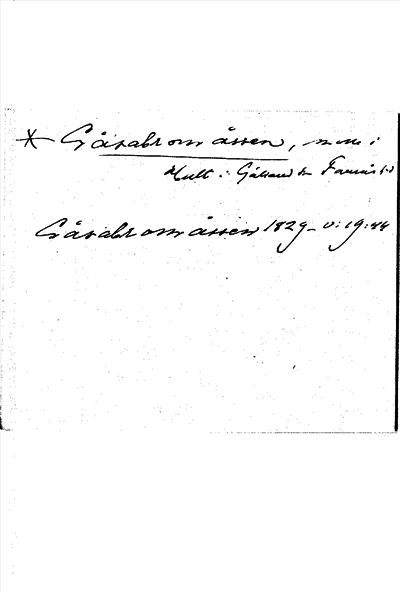 * Gåsabromåssen, mosse i
Hult i Gällared sn Faurås hd
Gåsabromåssen 1829 - v: 19: 44